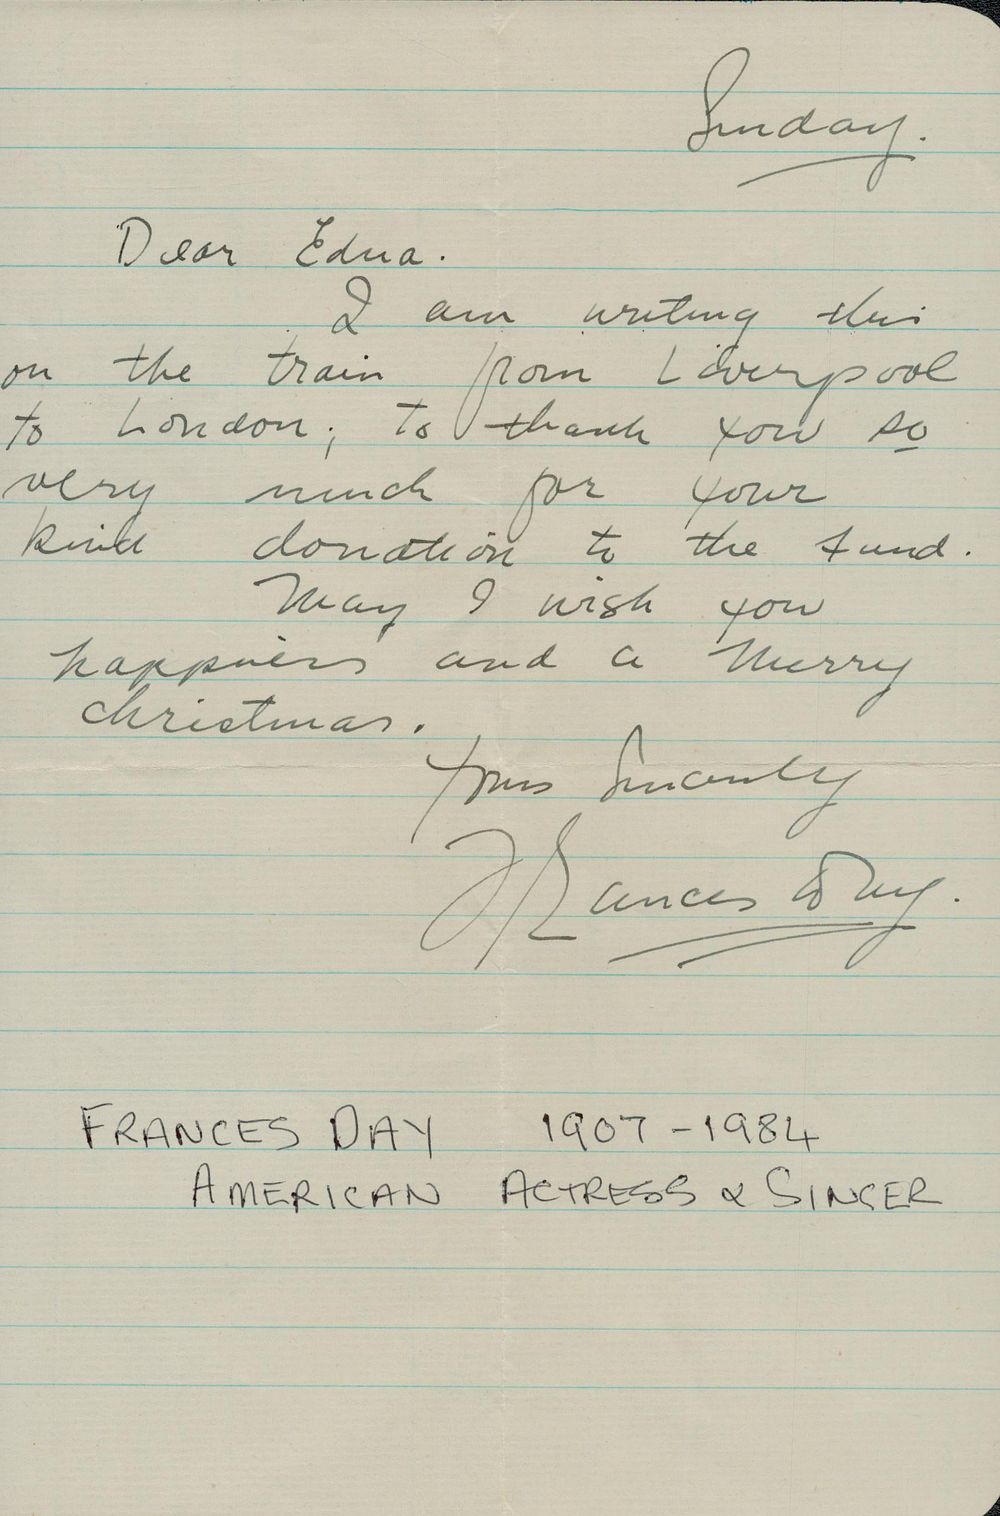 Sunday.
Dear Edna.
I am writing this
on the train from Liverpool
to London; to thank you so
very much for your
kind donation to the fund.
May I wish you
happiness and a Merry
christmas.
Yours Sincerely
Frances Day.
FRANCES DAY 1907-1984
AMERICAN ACTRESS & SINGER